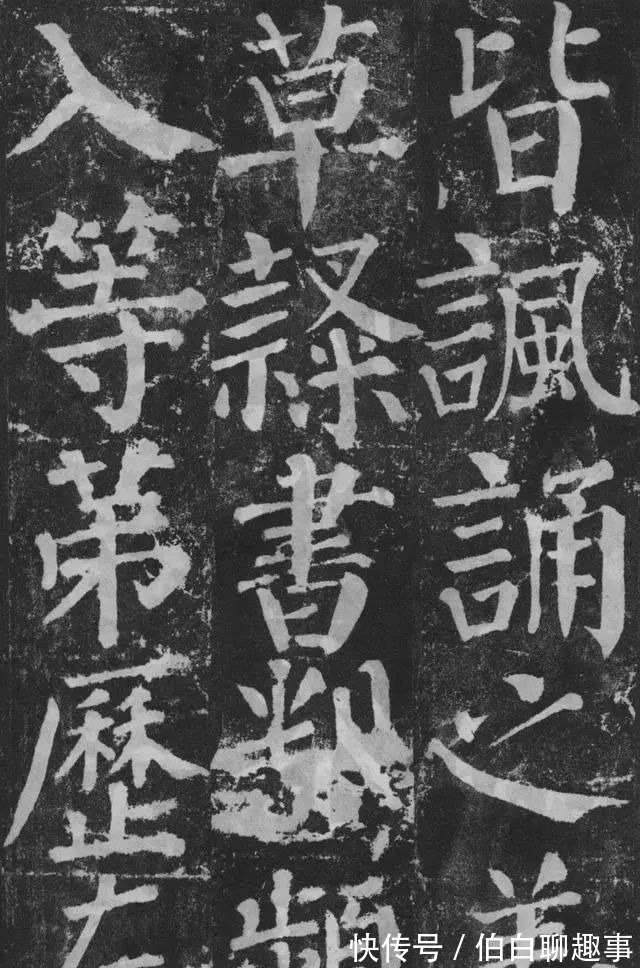 皆諷誦之善
草隸書判頻
入等第歷左
快传号 / 伯白聊趣事